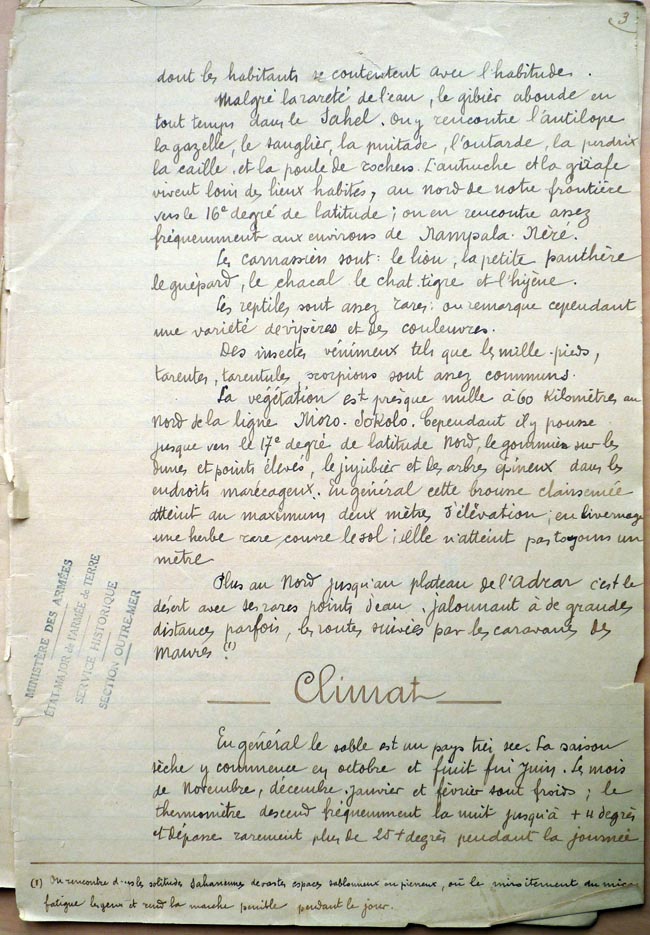 3
dont les habitants se contentent avec l'habitude.
Malgré la rareté de l'eau, le gibier abonde en
tout temps dans le Sahel. On y rencontre l'antilope
la gazelle, le sanglier, la pintade, l'outarde, la perdrix
la caille et la poule de rochers. L'autruche et la girafe
vivent loin des lieux habités, au nord de notre frontière
vers le 16e degré de latitude ; on en rencontre assez
fréquemment aux environs de Nampala. Néré.
Les carnassiers sont : le lion, la petite panthère
le guépard, le chacal le chat-tigre et l'hyène.
Les reptiles sont assez rares : on remarque cependant
une variété de vipères et des couleuvres.
Des insectes vénimeux tels que les mille-pieds,
tarentes, tarentules scorpions sont assez communs.
La végétation est presque nulle à 60 Kilomètres au
Nord de la ligne Nioro. Sokolo. Cependant il y pousse
jusque vers le 17e degré de latitude Nord, le gommier sur les
dunes et points élevés, le jujubier et les arbres épineux dans les
endroits marécageux. En général cette brousse clairsemée
atteint au maximum deux mètres d'élévation ; en hivernage
une herbe rare couvre le sol ; elle n'atteint pas toujours un
mètre
Plus au Nord jusqu'au plateau de l'Adrar c'est le
désert avec ses rares points d'eau, jalonnant à de grandes
distances parfois, les routes suivies par les caravanes des
Maures (1)
MINISTÈRE DES ARMÉES
ÉTAT-MAJOR de l'ARMÉE de TERRE
SERVICE HISTORIQUE
SECTION OUTRE-MER
Climat
En général le sable est un pays très sec. La saison
sèche y commence en octobre et finit fin Juin. Les mois
de Novembre, décembre, janvier et février sont froids ; le
thermomètre descend fréquemment la nuit jusqu'à +4 degrés
et dépasse rarement plus de 25+ degrés pendant la journée
(1) On rencontre dans les solitudes Sahariennes de vastes espaces sablonneux ou pierreux, où le miroitement du mica
fatigue les yeux et rend la marche pénible pendant le jour.